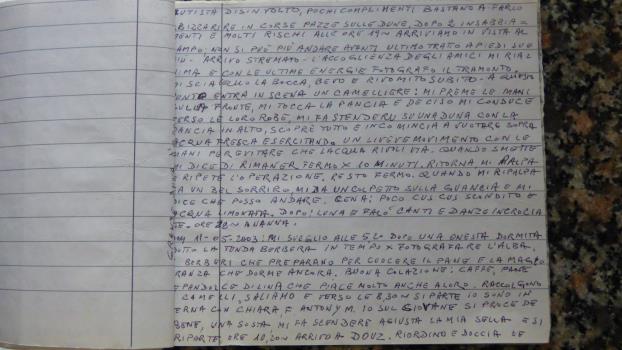 AUTISTA DISINVOLTO, POCHI COMPLIMENTI BASTANO A FARLO
SBIZZARIRE IN CORSE PAZZE SULLE DUNE. DOPO 2 INSABBIA=
MENTI E MOLTI RISCHI ALLE ORE 19~ ARRIVIAMO IN VISTA AL
CAMPO: NON SI PUÒ PIÙ ANDARE AVANTI ULTIMO TRATO A PIEDI SUE
ARRIVO STREMATO - L'ACCOGLIENZA DEGLI AMICI MI RIAL
E CON LE ULTIME ENERGIE FOTOGRAFO IL TRAMONTO.
MI SCIACQUO LA BOCCA, BEVO E RIVOMITO SUBITO - A QUESTO
ENTRA IN SCENA UN CAMELLIERE: MI PREME LE MANI
SULLA FRONTE, MI TOCCA LA PANCIA E DECISO MI CONDUCE
VERSO LE LORO ROBE, MI FA STENDERE SU UNA DUNA CON LA
PANCIA IN ALTO, SCOPRE TUTTO E INCOMINCIA A VUOTARE SOPRA
ACQUA FRESCA ESERCITANDO UN LIEVE MOVIMENTO CON LE
MANI PER EVITARE CHE L'ACQUA RIVOLI VIA. QUANDO SMETTE
MI DICE DI RIMANER FERMO X 10 MINUTI. RITORNA MI PALPA
E RIPETE L'OPERAZIONE, RESTO FERMO. QUANDO MI RIPALPA
FA UN BEL SORRISO, MI DA UN COLPETTO SULLA GUANCIA E MI
DICE CHE POSSO ANDARE. CENA: POCO CUS CUS SCONDITO E
ACQUA LIMONATA. DOPO: LUNA E FALÒ CANTI E DANZE INCROCIA
TE. ORE 22~ A NANNA.
11-05-2003: MI SVEGLIO ALLE 5,20 DOPO UNA ONESTA DORMITA
SOTTO LA TENDA BERBERA IN TEMPO X FOTOGRAFARE L'ALBA.
BERBERI CHE PREPARANO PER CUOCERE IL PANE E LA MAGGIO
RANZA CHE DORME ANCORA. BUONA COLAZIONE: CAFFÈ, PANE
E PANDOLCE DI LINA CHE PIACE MOLTO ANCHE A LORO. RACCOLGONO
CAMELLI, SALIAMO E VERSO LE 8,30~ SI PARTE IO SONO IN
TERNA CON CHIARA, F. ANTON Y M. IO SUL GIOVANE SI PROCEDE
BENE, UNA SOSTA. MI FA SCENDERE AGIUSTA LA MIA SELLA E SI
RIPARTE, ORE 10,20~ ARRIVO A DOUZ. RIORDINO E DOCCIA LE